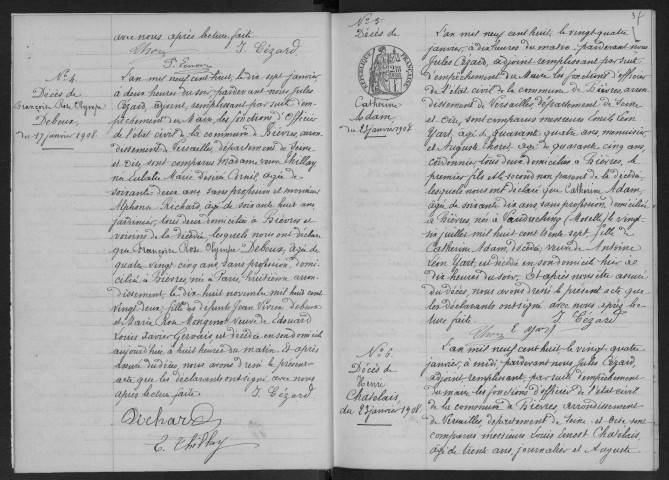 avec nous après lecture faite.
J. Cézard
N° 4.
Décès de
Françoise Rose Olympe
Deboux
du 17 janvier 1908.
L'an mil neuf cent huit, le dix sept janvier
à deux heures du soir, pardevant nous Jules
Cézard, adjoint, remplissant par suite d'em-
pêchement du Maire les fonctions d'Officier
de l'état civil de la commune de Bièvres, arron-
dissement de Versailles, département de Seine
et Oise, sont comparus Madame veuve
née Eulalie Marie agée de
soixante deux ans sans profession et monsieur
Alphonse Richard, agé de soixante huit ans,
jardinier, tous deux domiciliés à Bièvres et
voisins de la décédée, lesquels nous ont déclaré
que Françoise Rose Olympe Deboux, agée de
quatre vingt cinq ans, sans profession, domi-
ciliée à Bièvres, née à Paris, huitième arron-
dissement, le dix huit novembre mil huit cent
vingt deux, fille des défunts Jean Deboux
et Marie Rose veuve de Edouard
Louis Xavier Gervais est décédée en son domicile
aujourd'hui à huit heures du matin. Et après
nous avons dressé le présent
acte que les déclarants ont signé, avec nous
après lecture faite.
J. Cézard.
Richard
N° 5.
Décès de
RÉPUBLIQUE FRANÇAISE
Catherine
Adam,
du 23 janvier 1908
L'an mil neuf cent huit, le vingt quatre
janvier, à dix heures du matin, pardevant nous
Jules Cézard, adjoint, remplissant par suite
d'empêchement du Maire les fonctions d'officier
de l'état civil de la commune de Bièvres, arron-
dissement de Versailles, département de Seine
et Oise, sont comparus messieurs Emile Léon
Yart, agé de quarante quatre ans, menuisier,
et Auguste agé de quarante cinq ans,
cordonnier, tous deux domiciliés à Bièvres, le
premier fils et le second non parent de la décédée,
lesquels nous ont déclaré que Catherine Adam,
agée de soixante dix ans, sans profession, domiciliée
à Bièvres, née à (Moselle) le vingt
six juillet mil huit cent trente sept, fille de
Catherine Adam, décédée, veuve de Antoine
Léon Yart est décédée en son domicile hier à
dix heures du soir. Et après nous être assuré
du décès, nous avons dressé le présent acte que
les déclarants ont signé avec nous après lec-
ture faite.
J. Cézard
E. Yart
N° 6.
Décès de
Henri
Chatelais,
du 23 janvier 1908.
L'an mil neuf cent huit, le vingt quatre
janvier, à midi, pardevant nous Jules Cézard,
adjoint, remplissant par suite d'empêchement
du maire, les fonctions d'officier de l'état civil
de la commune de Bièvres, arrondissement
de Versailles, département de Seine et Oise sont
comparus messieurs Louis Ernest Chatelais,
agé de trente ans, journalier et Auguste